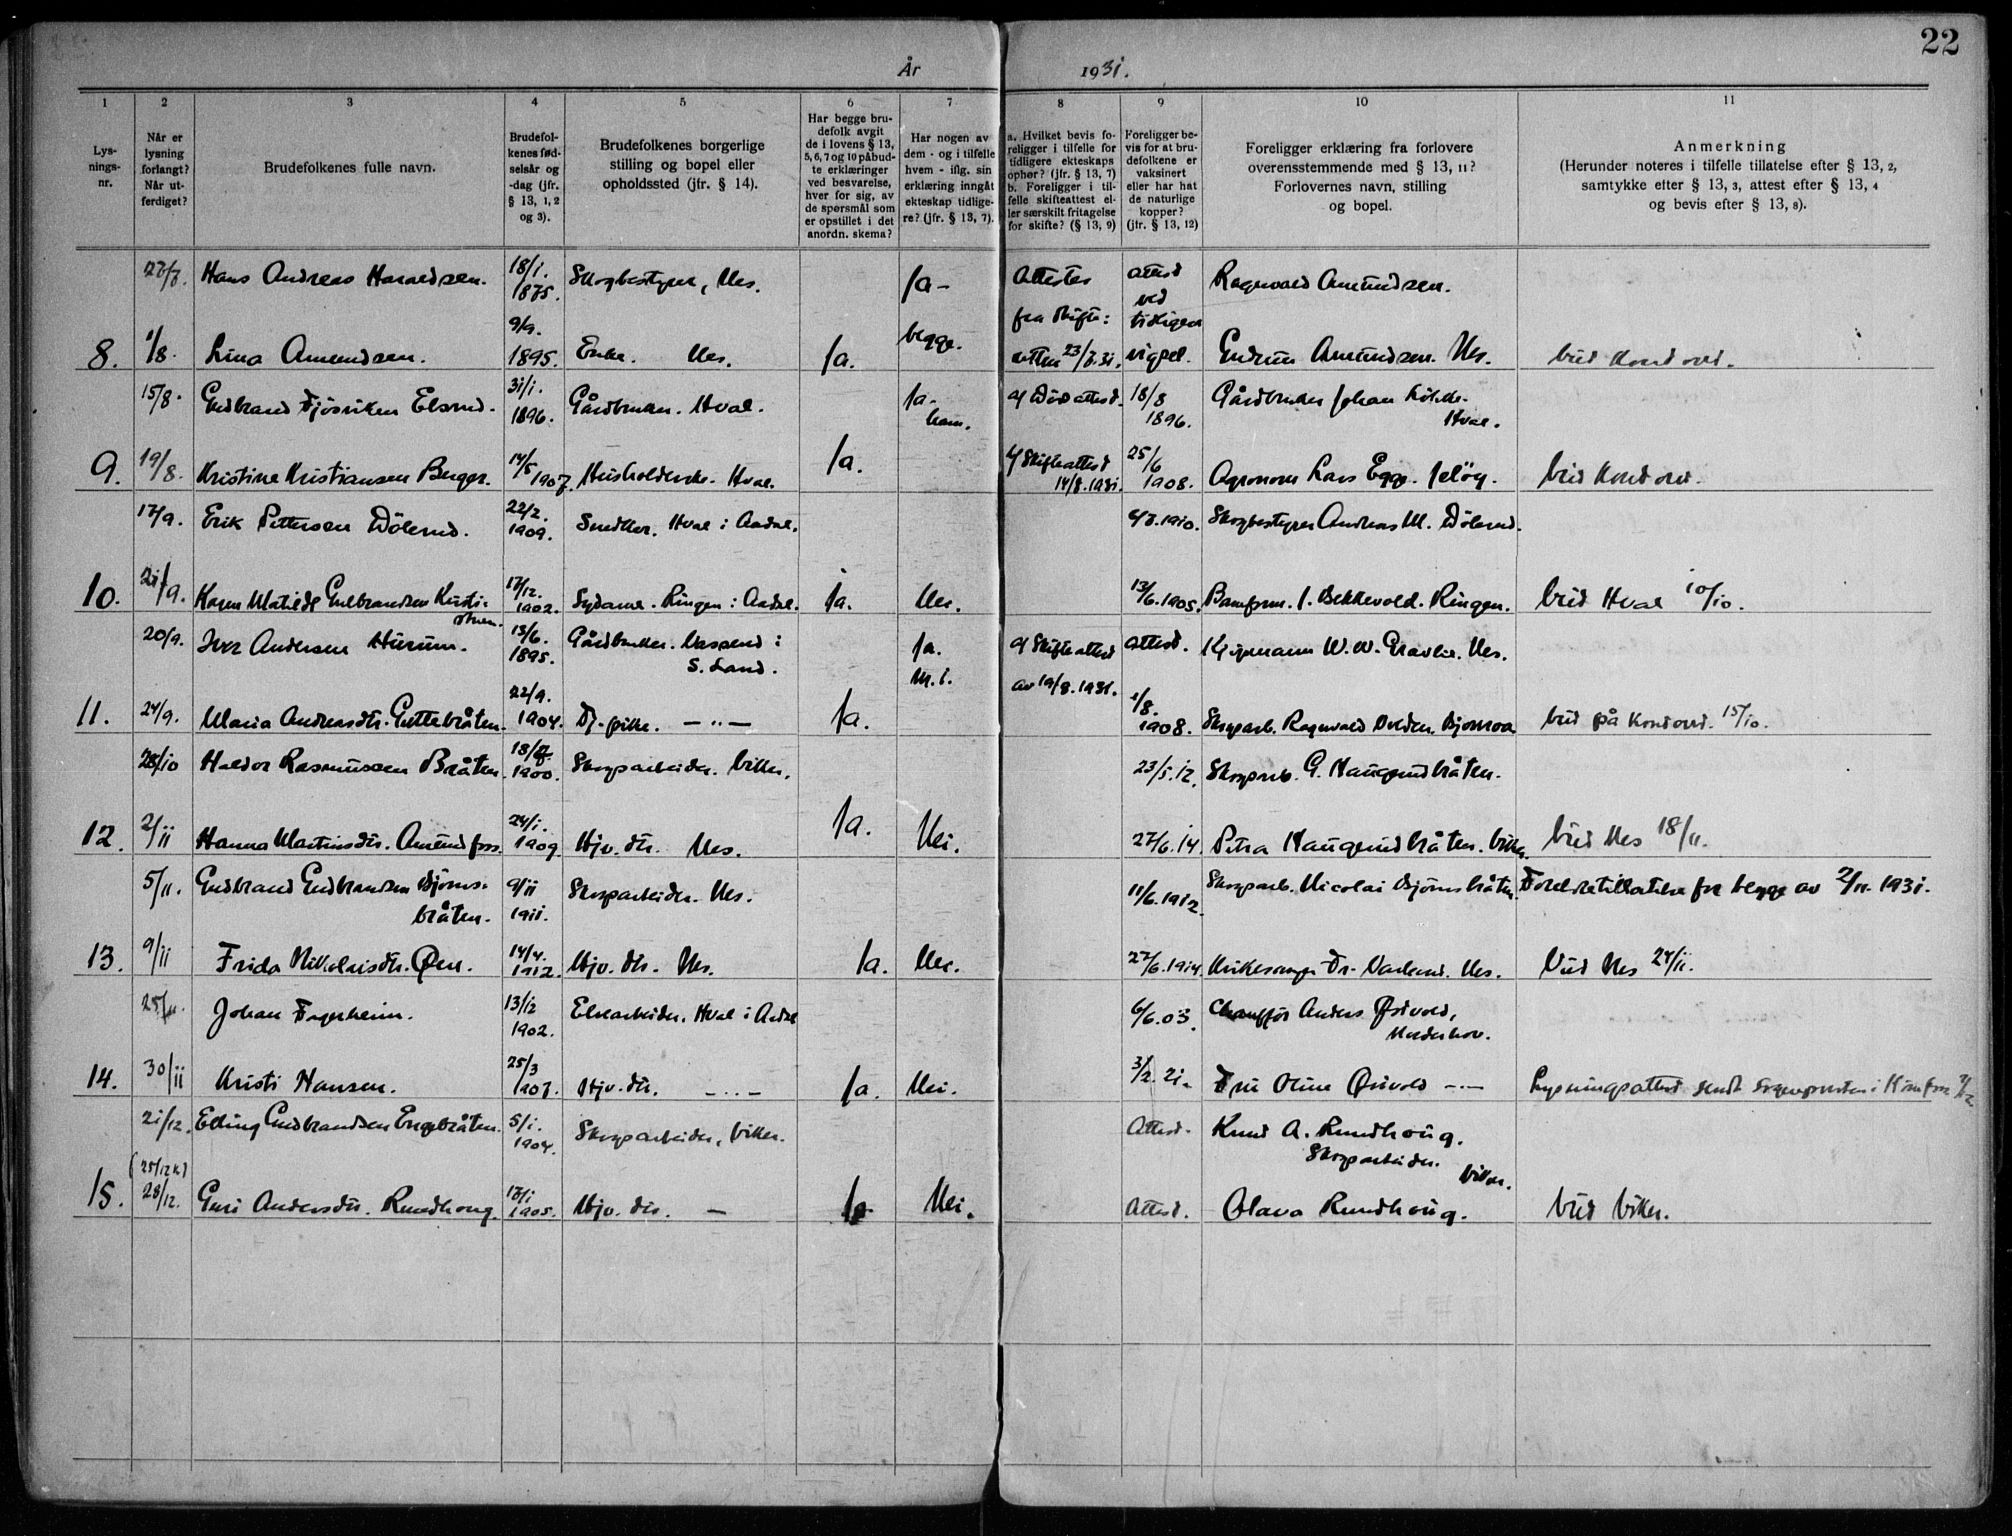 22
År 1931.
1 2 3 4 5 6 7 8 9 10 11
Lys-
nings-
nr.
Når er
lysning
forlangt?
Når ut-
ferdiget?
Brudefolkenes fulle navn.
Brudefol-
kenes fød-
selsår og
-dag (jfr.
§ 13, 1, 2
og 3).
Brudefolkenes borgerlige
stilling og bopel eller
opholdssted (jfr. § 14).
Har begge bru-
defolk avgit
de i lovens § 13,
5, 6, 7 og 10 påbud-
te erklæringer
ved besvarelse,
hver for sig, av
de spørsmål som
er opstillet i det
anordn. skema?
Har nogen av
dem - og i tilfelle
hvem - iflg. sin
erklæring inngått
ekteskap tidlige-
re? (jfr. § 13, 7).
a. Hvilket bevis fo-
religger i tilfelle for
tidligere ekteskaps
ophør? (jfr. § 13, 7)
b. Foreligger i til-
felle skifteattest el-
ler særskilt fritagelse
for skifte? (§ 13, 9)
Foreligger be-
vis for at bru-
defolkene er
vaksinert
eller har hat
de naturlige
kopper?
(jfr. § 13, 12)
Foreligger erklæring fra forlovere
overensstemmende med § 13, 11?
Forlovernes navn, stilling
og bopel.
Anmerkning
(Herunder noteres i tilfelle tillatelse efter § 13, 2,
samtykke efter § 13, 3, attest efter § 13, 4
og bevis efter § 13, 8).
27/7. Hans Andreas Haraldsen. 18/1. 1875. Skogbestyrer, Nes. Ja - Attester attest Ragnvald Amundsen.
fra skifte: ved tidligere
8. 1/8. Lina Amundsen. 9/9. 1895. Enke. Nes. Ja. begge. retten 23/7.31. vigsel. Gudrun Amundsen. Nes.
15/8. Gudbrand Fjøsviken Elsrud. 31/1. 1896. Gårdbruker. Hval. Ja. ham. a/ Dødsattest. 18/8 1896. Gårdbruker Johan
Hval.
9. 19/8. Kristine Kristiansen Berger. 14/5 1907. Husholderske. Hval. Ja. b/ Skifteattest 14/8.1931. 25/6 1908. Agronom Lars Egge. Jeløy.
17/9. Erik Pettersen Dölerud. 22/2. 1909. Snekker. Hval i Aadal. 4/7.1910. Skogbestyrer Andreas M. Dölerud.
10. 21/9. Karen Matilde Gulbrandsen 17/12. 1902. Sydame. Ringen i Aadal. Ja. Nei. 13/6.1905. J. Bekkevold. Ringen. Vied Hval 10/10.
20/9. Iver Andersen Hurum. 15/6. 1895. Gårdbruker. i Ja. a/ Skifteattest Attest. Kjøpmann W. W. Gravlie. Nes.
S. Land. M. i. av 19/8.1931.
11. 24/9. Maria Andreasdtr. Guttebråten. 22/9. 1904. Tj.pike. — " — Ja. 1/8. 1908. Skogarb. Ragnvald
15/10.
28/10 Haldor Rasmussen Bråten. 18/7 1900. Skogsarbeider. Viker. 23/5.12. Skogarb. G. Haugerudbråten.
12. 2/11 Hanna Martinsdtr. Amundfoss. 24/1. 1909. Hjv. dtr. Nes. Ja. Nei. 27/6.14. Petra Haugerudbråten. Viker. Vied Nes 18/11.
5/11. Gudbrand Gudbrandsen Bjørns-
bråten. 9/11 1911. Skogsarbeider. Nes. 11/6.1912. Skogsarb. Nicolai Bjørnsbråten. Foreldretillatelse for begge av 2/11. 1931.
13. 9/11 Frida Nikolaisdtr. Øen. 14/4. 1912. Hjv. dtr. Nes. Ja. Nei. 27/6.1914. Kirkesanger Nes. Vied Nes 24/11.
25/11. Johan Fagerheim. 13/12 1902. Elvearbeider. Hval i Aadal 6/6.03. Chauffør Anders Østvold,
14. 30/11 Kristi Hansen. 25/3 1907. Hjv. dtr. — " — Ja. Nei. 3/2.21. Fru Oline Østvold — " — Lysningsattest sendt sognepresten i
21/12. Edling Gudbrandsen Engebråten. 5/1. 1904. Skogsarbeider, Viker. Attest. Knud A. Rundhoug.
Skogsarbeider.
Viker.
(25/12 kl)
15. 28/12. Guri Andersdtr. Rundhoug. 17/1 1905. Hjv. dtr. — Ja Nei. Attest. Olava Rundhoug. Vied Viker.